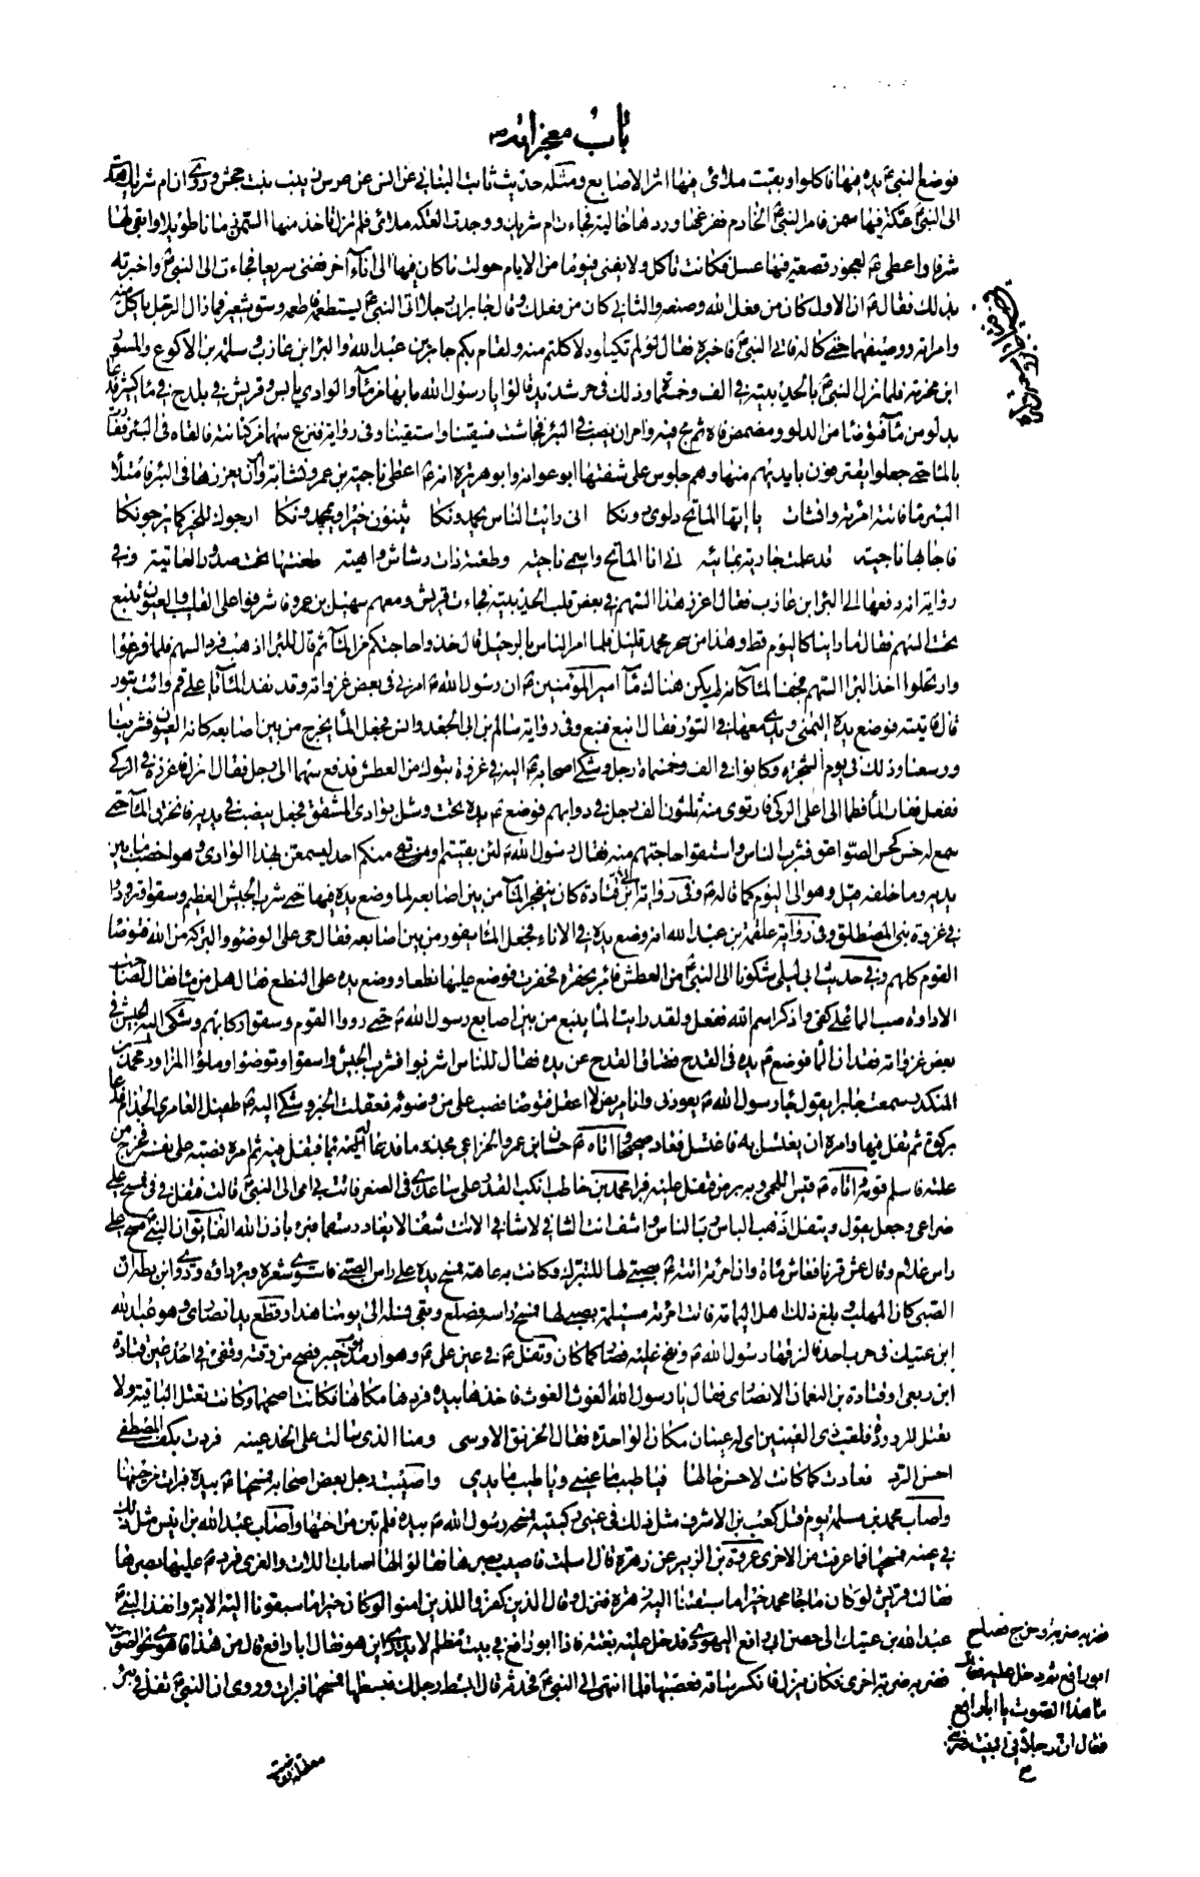 باب معجزاته ص
فوضع النبي ع يده فيها فاكلوا وبقيت ملائى فيها اثر الاصابع ومثله حديث ثابت البناني عن انس عن عرس زينب بنت جحش وروى ان ام شريك اهدت
الى النبي ع عكة فيها سمن فامر النبي ع الخادم ففرغها وردها خالية فجاءت ام شريك ووجدت العكة ملائى فلم تزل تاخذ منها السمن زمانا طويلا وابقى لها
شرفا واعطى ع لعجوز قصعة فيها عسل فكانت تاكل ولا يفنى فيوما من الايام حولت ما كان فيها الى اناء آخر ففنى سريعا فجاءت الى النبي ع واخبرته
بذلك فقال ع ان الاول كان من فعل الله وصنعه والثاني كان من فعلك وقال جابر ان رجلا اتى النبي ع يستطعمه فاطعمه وسق شعير فما زال الرجل ياكل منه
وامراته ووصيفهما حتى كاله فاتى النبي ع فاخبره فقال لو لم تكيلوه لاكلتم منه ولقام بكم جابر بن عبد الله والبراء ابن عازب وسلمة بن الاكوع والمسور
ابن مخرمة فلما نزل النبي ع بالحديبية في الف وخمسمائة وذلك في حر شديد قالوا يا رسول الله ما بها من ماء والوادي يابس وقريش في بلدح في ماء كثير فدعا
بدلو من ماء فتوضا من الدلو ومضمض فاه ثم مج فيه وامر ان يصب في البئر فجاشت فسقينا واستقينا وفي رواية فنزع سهما من كنانته فالقاه في البئر ففارت
بالماء حتى جعلوا يغترفون بايديهم منها وهم جلوس على شفتها ابو عوانة وابو هريرة انه ع اعطى ناجية بن عمرو نشابة وامر ان يغرزها في البئر فامتلأ
البئر ماء فاتته امرئة وانشات يا ايها الماتح دلوي دونكا انى رايت الناس يحمدونكا يثنون خيرا ويمجدونكا ارجوك للخير كما يرجونكا
فاجابها ناجية قد علمت جارية يمانية اني انا الماتح واسمى ناجية وطعنة ذات رشاش واهية طعنتها تحت صدور العاتية وفي
رواية انه دفعها الى البراء ابن عازب فقال اغرز هذا السهم في بعض قلب الحديبية فجاءت قريش ومعهم سهيل بن عمرو فاشرفوا على القليب والعيون تنبع
تحت السهم فقال ما راينا كاليوم قط وهذا من سحر محمد قليل فلما امر الناس بالرحيل قال خذوا حاجتكم من الماء ثم قال للبراء اذهب فرد السهم فلما فرغوا
وارتحلوا اخذ البراء السهم فجف الماء كانه لم يكن هناك ماء امير المؤمنين ع ان رسول الله ع امرني في بعض غزواته وقد نفد الماء يا على قم وائت بتور
قال فاتيته فوضع يده اليمنى ويدى معها في التور فقال انبع فنبع وفي رواية سالم بن ابي الجعد وانس فجعل الماء يخرج من بين اصابعه كانه العيون فشربنا
ورسعنا وذلك في يوم الشجرة وكانوا في الف وخمسمائة رجل وشكى اصحابه ع اليه في غزوة تبوك من العطش فدفع سهما الى رجل فقال انزل فاغرزه في الركى
ففعل ففار الماء فطما الى اعلى الركى فارتوى منه ثلثون الف رجل في دوابهم فوضع ع يده تحت وشل بوادى المشقق فجعل يصب في يديه فانخرق الماء حتى
سمع له حس كحس الصواعق فشرب الناس واستقوا حاجتهم منه فقال رسول الله ع لئن بقيتم او من بقى منكم احد ليسمعن بهذا الوادي وهو اخصب ما بين
يديه وما خلفه قيل وهو الى اليوم كما قاله ع وفي رواية ابي قتادة كان يتفجر الماء من بين اصابعه لما وضع يده فيها حتى شرب الجيش العظيم وسقوا وتزودوا
في غزوة بنى المصطلق وفي رواية علقمة بن عبد الله انه وضع يده في الاناء فجعل الماء يفور من بين اصابعه فقال حي على الوضوء والبركة من الله فتوضا
القوم كلهم وفي حديث ابي ليلى شكونا الى النبي ع من العطش فامر بحفرة فحفرت فوضع عليها نطعا ووضع يده على النطع فقال هل من ماء فقال لصاحب
الاداوة صب الماء على كفى واذكر اسم الله ففعل ولقد رايت الماء ينبع من بين اصابع رسول الله ع حتى رووا القوم وسقوا ركابهم وشكى اليه الجيش في
بعض غزواته فقدان الماء فوضع ع يده في القدح فضاق القدح عن يده فقال للناس اشربوا فشرب الجيش واسقوا وتوضئوا وملؤا المزاود محمد بن
المنكدر سمعت جابرا يقول جاء رسول الله ع يعودني وانا مريض لا اعقل فتوضا فصب على من وضوئه فعقلت الخبر وشكى اليه ع طفيل العامري الجذام فدعا
بركوة ثم تفل فيها وامره ان يغتسل به فاغتسل فعاد صحيحا واتاه ع حسان ابن عمرو الخزاعي مجذوما فدعا له بماء فتفل فيه ثم امره فصبه على نفسه فخرج من
علته فاسلم قومه واتاه ع قيس اللخمي وبه برص فتفل عليه فبرا محمد بن حاطب انكب القدر على ساعدى في الصغر فاتت بي امى الى النبي ع قالت فتفل في في ومسح على
ذراعي وجعل يقول ويتفل اذهب الباس رب الناس واشف انت الشافي لا شافي الا انت شفاء لا يغادر سقما فبرئ باذن الله الفايق ان النبي ع مسح على
راس غلام وقال عش قرنا فعاش مائة وان امرئة اتته ع بصبى لها للتبرك وكانت به عاهة فمسح يده على راس الصبى فاستوى شعره وبرء داؤه وروى ابن بطة ان
الصبى كان المهلب وبلغ ذلك اهل اليمامة فاتت امرئة مسيلمة بصبى لها فمسح راسه فصلع وبقى نسله الى يومنا هذا وقطع يد انصاري وهو عبد الله
ابن عتيك في حرب احد فالزقها رسول الله ع ونفخ عليه فصار كما كان وتفل ع في عين على ع وهو ارمد يوم خيبر فصح من وقته وفقئ في احد عين قتادة
ابن ربعي او قتادة بن النعمان الانصاري فقال يا رسول الله الغوث الغوث فاخذها بيده فردها مكانها فكانت اصحهما وكانت تعتل الباقية ولا
تعتل المردودة فلقب ذي العينين اي له عينان مكان الواحدة فقال الخرنق الاوسي ومنا الذي سالت على الخد عينه فردت بكف المصطفى
احسن الرد فعادت كما كانت لاحسن حالها فيا طيب ما عينى ويا طيب ما يدي واصيبت رجل بعض اصحابه فمسحها ع بيده فبرات من حينها
واصاب محمد بن مسلمة يوم قتل كعب بن الاشرف مثل ذلك في عينى ركبتيه فمسحه رسول الله ع بيده فلم تبن من اختها واصاب عبد الله بن انيس مثل ذلك
في عينه فمسحها فما عرفت من الاخرى عروة بن الزبير عن زهرة قال اسلمت فاصيب بصرها فقالوا لها اصابك اللات والعزى فرد ع عليها بصرها
فقالت قريش لو كان ما جاء محمد خيرا ما سبقتنا اليه زهرة فنزل وقال الذين كفروا للذين امنوا لو كان خيرا ما سبقونا اليه الاية وانفذ النبي ع
عبد الله بن عتيك الى حصن ابي رافع اليهودي فدخل عليه بغتة فاذا ابو رافع في بيت مظلم لا يدرى اين هو فقال ابا رافع قال من هذا فاهوى نحو الصوت
فضربه ضربة اخرى فكان ينزل فانكسر ساقه فعصبها فلما انتهى الى النبي ع فحدثه قال ابسط رجلك فبسطها فمسحها فبرات وروى ان النبي ع تفل في بئر
فضربه ضربة وخرج فصاح
ابو رافع ثم دخل عليه فقال
ما هذا الصوت يا ابا رافع
فقال ان رجلا في البيت ضربني
معطلة ففاضت